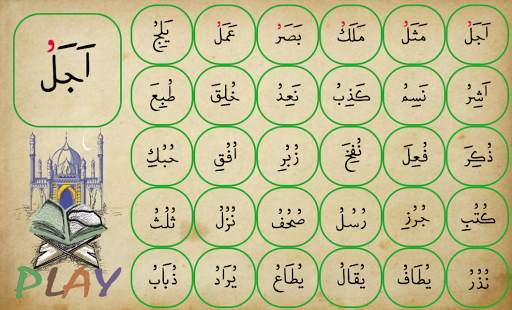 اَجَلُ
اَجَلُ مَثَلُ مَلَكُ بَصَرُ عَمَلُ يَلِجُ
اَشِرُ نَسِمُ كَذِبُ نَعِدُ خُلِقَ طُبِعَ
ذُكِرَ فُعِلَ نُفِخَ زُبُرِ اُفُقِ حُبُكِ
كُتُبِ جُرُزِ رُسُلُ صُحُفُ نُزُلُ ثُلُثُ
نُذُرُ يُطَافُ يُقَالُ يُطَاعُ يُرَادُ ذُبَابُ
PLAY